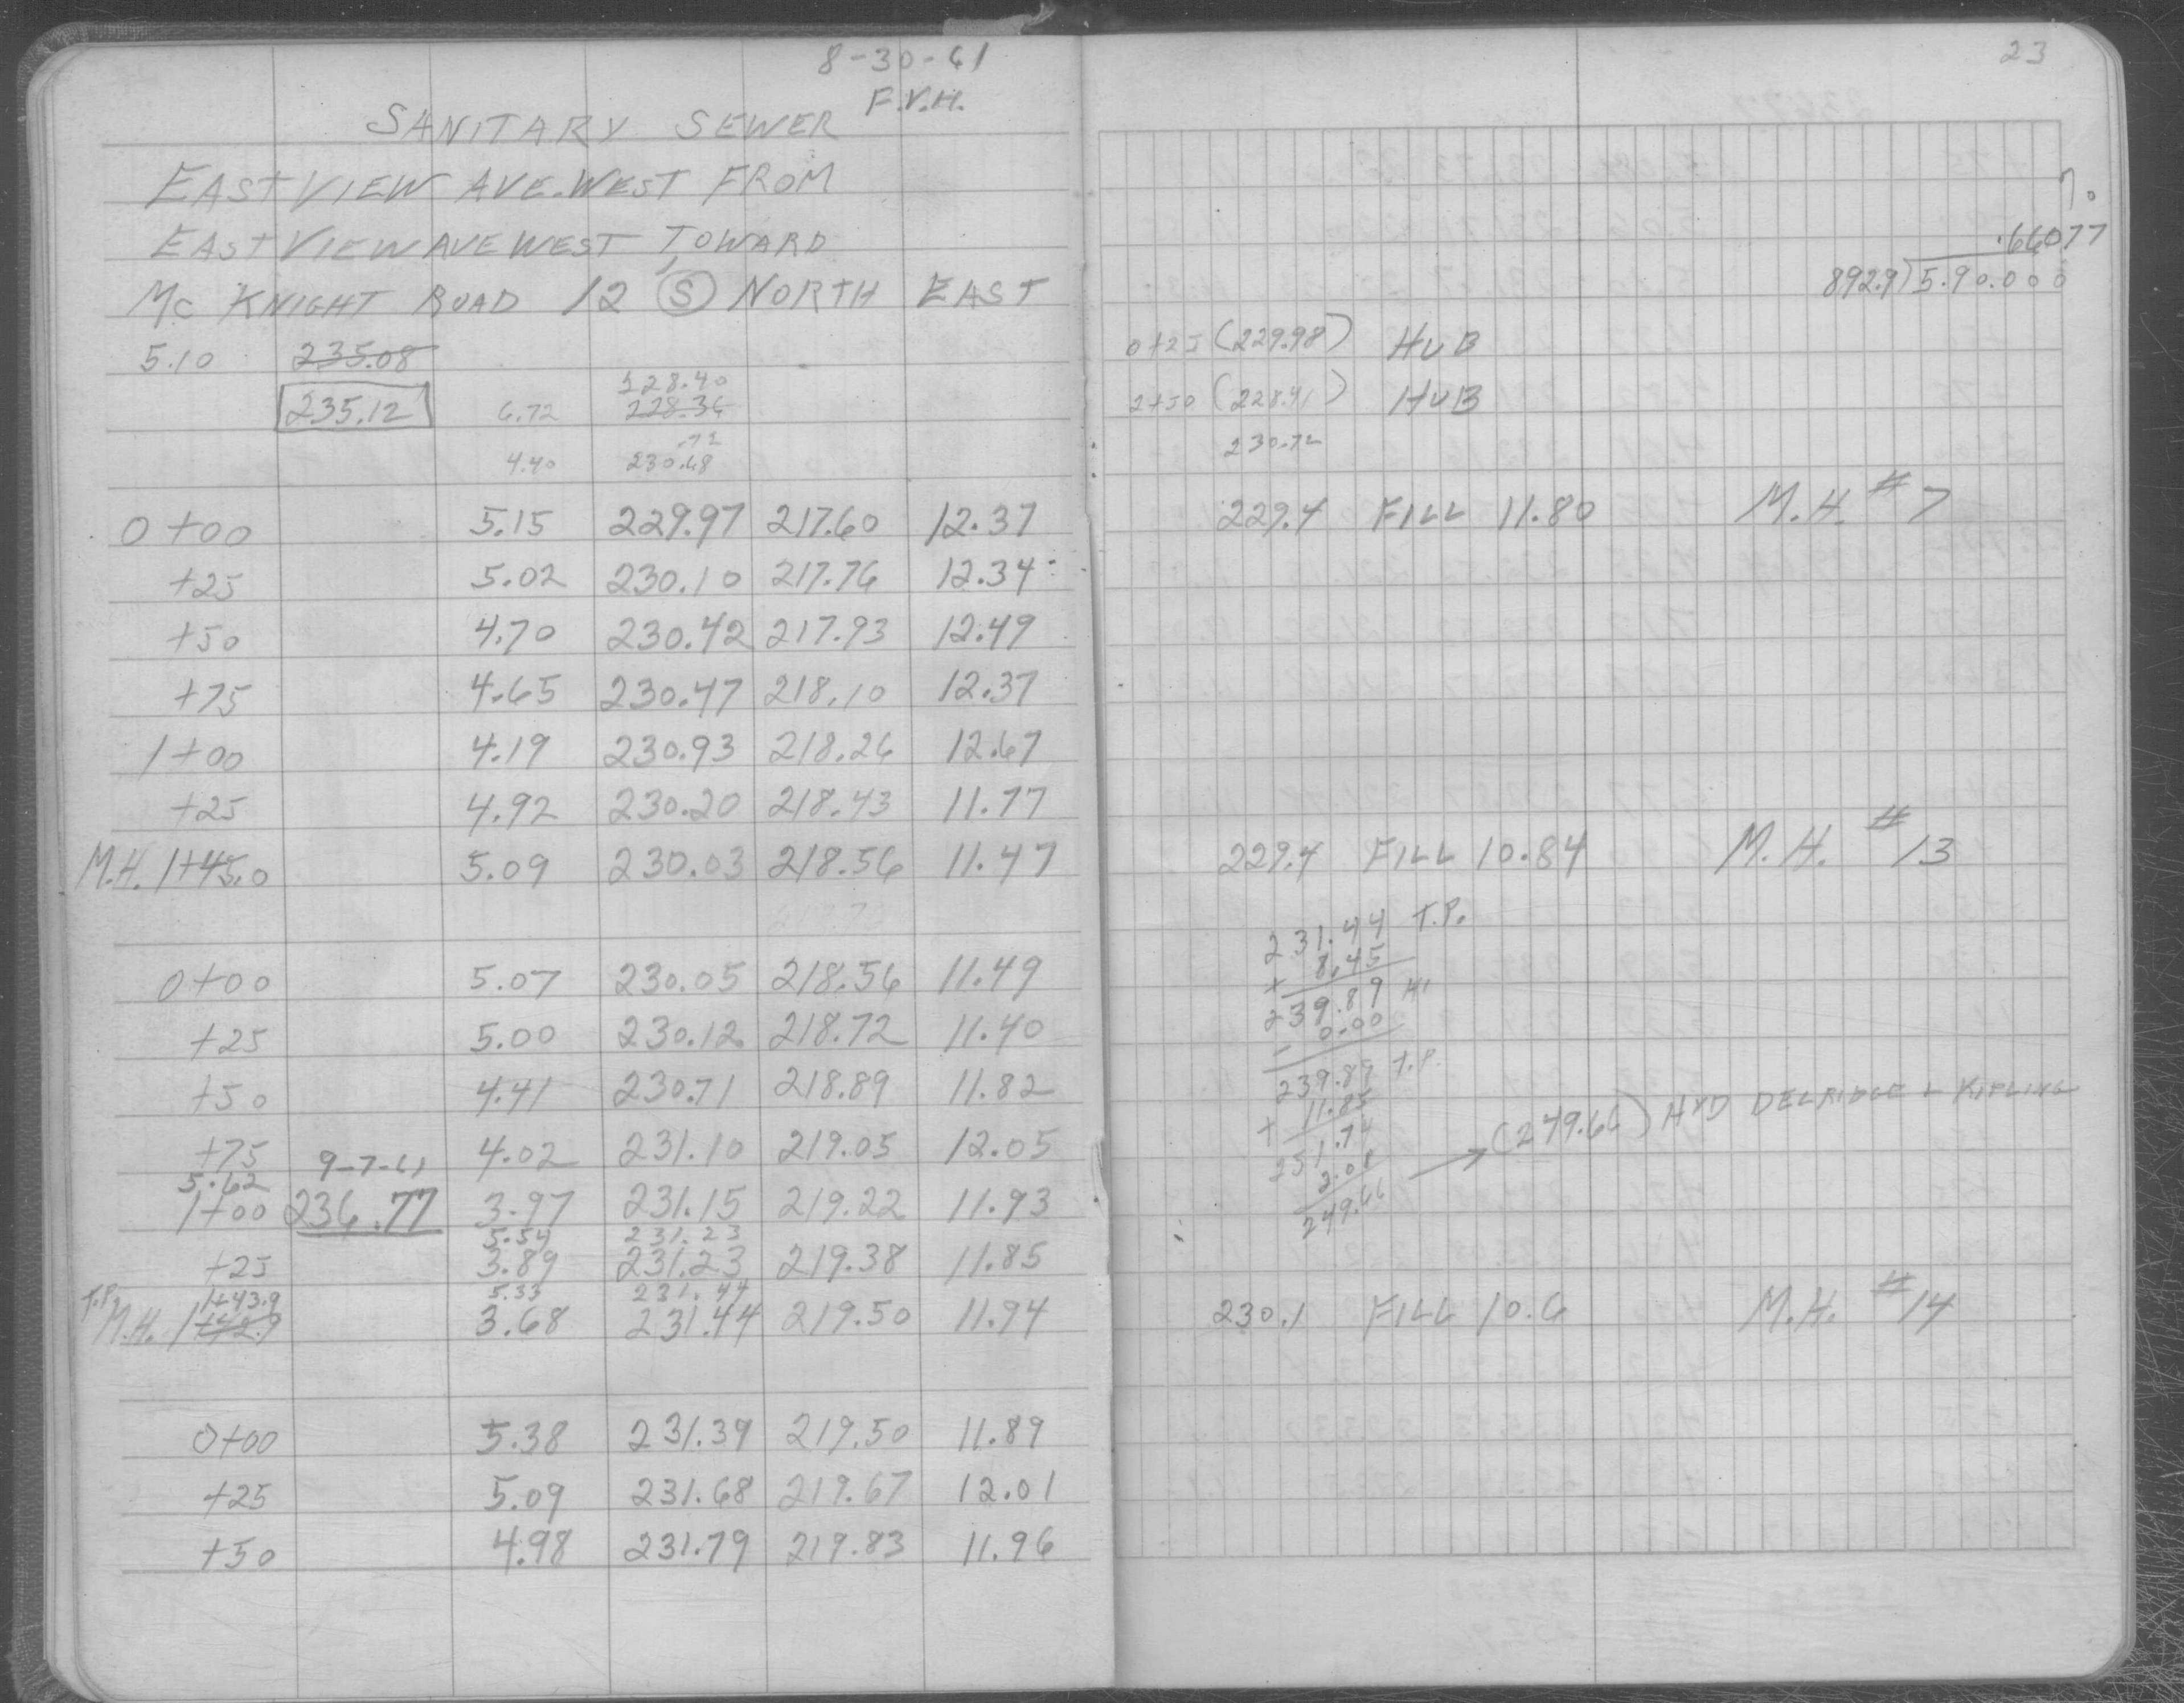 8-30-61
F.V.H.
SANITARY SEWER
EASTVIEW AVE. WEST FROM
EASTVIEW AVE WEST TOWARD
Mc KNIGHT ROAD 12' Ⓢ NORTH EAST
5.10 235.08
228.40
235.12 6.72 228.36
.72
4.40 230.68
0+00 5.15 229.97 217.60 12.37
+25 5.02 230.10 217.76 12.34
+50 4.70 230.42 217.93 12.49
+75 4.65 230.47 218.10 12.37
1+00 4.19 230.93 218.26 12.67
+25 4.92 230.20 218.43 11.77
M.H. 1+45.0 5.09 230.03 218.56 11.47
0+00 5.07 230.05 218.56 11.49
+25 5.00 230.12 218.72 11.40
+50 4.41 230.71 218.89 11.82
+75 9-7-61 4.02 231.10 219.05 12.05
5.62
1+00 236.77 3.97 231.15 219.22 11.93
5.54 231.23
+25 3.89 231.23 219.38 11.85
T.P. 1+43.9 5.33 231.44
M.H. 1+42.9 3.68 231.44 219.50 11.94
0+00 5.38 231.39 219.50 11.89
+25 5.09 231.68 219.67 12.01
+50 4.98 231.79 219.83 11.96
23
%
.66077
892.9)5.90.000
0+25 (229.98) HUB
2+50 (228.41) HUB
230.72
229.4 FILL 11.80 M.H. #7
229.4 FILL 10.84 M.H. #13
231.44 T.P.
+ 8.45
239.89 HI
- 0.00
239.89 T.P.
+ 11.85
251.74
2.08
249.66 → (249.66) HYD DELRIDGE & KIPLING
230.1 FILL 10.6 M.H. #14